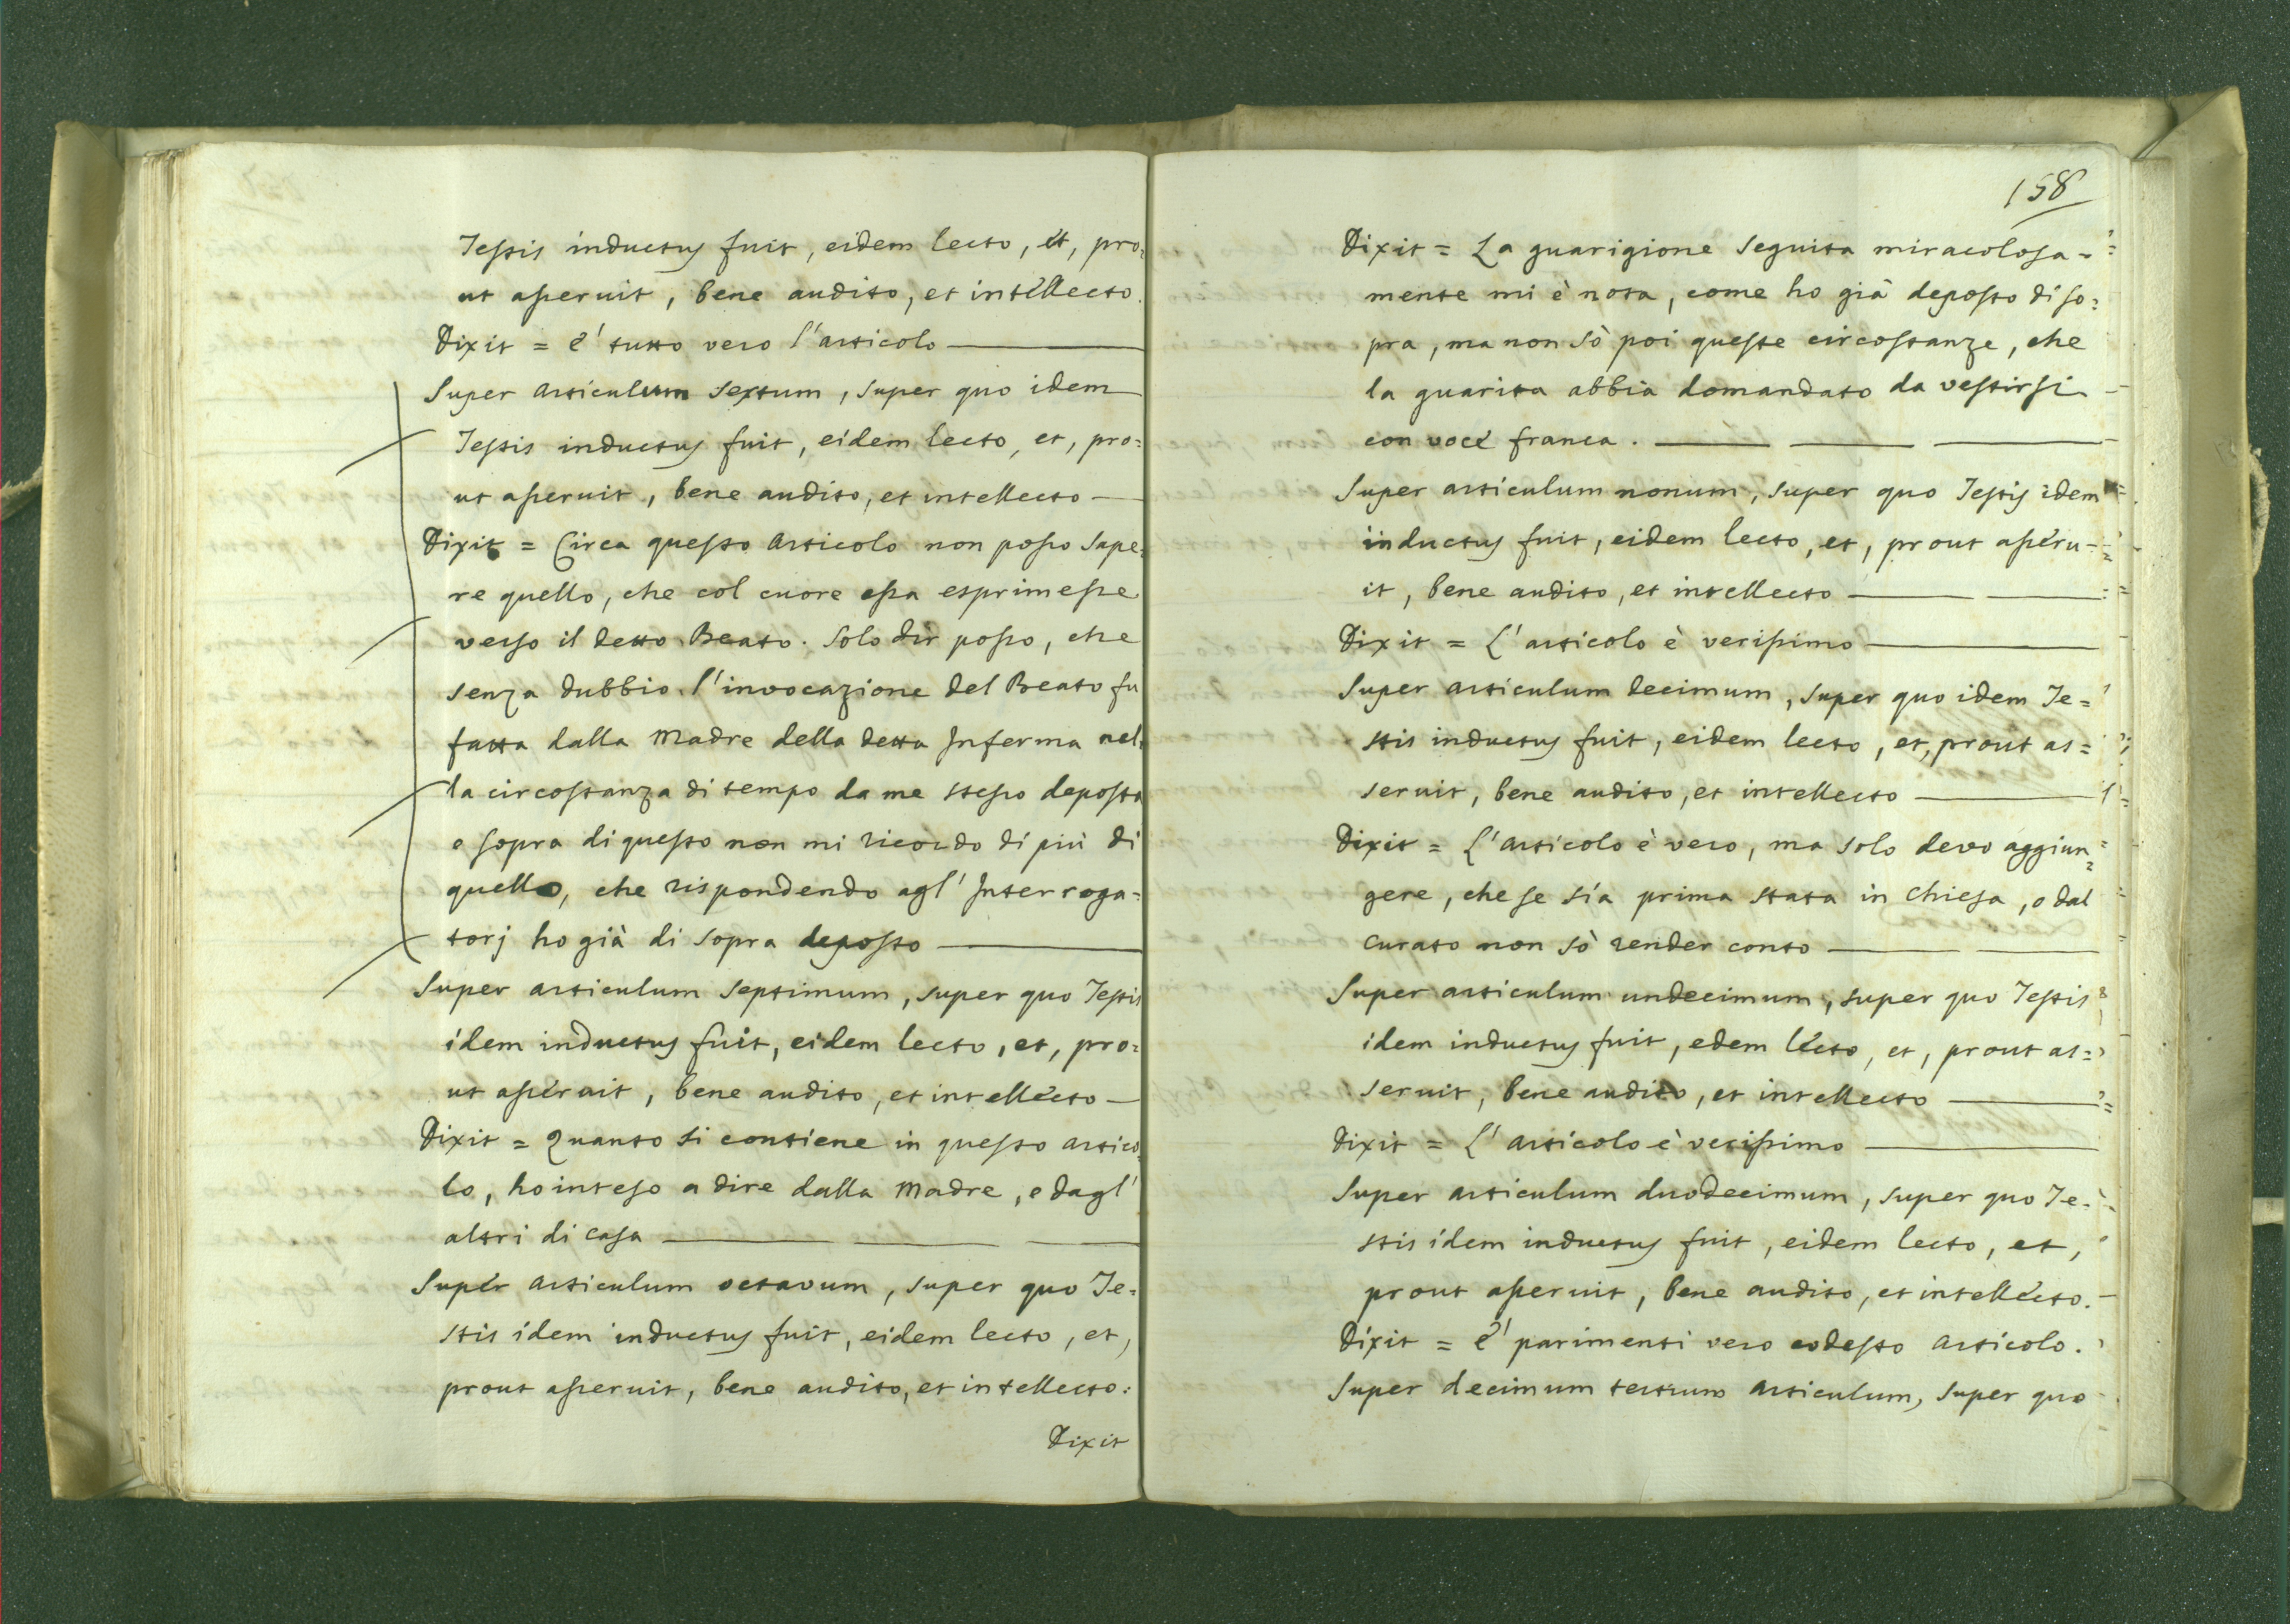 Testis inductus fuit, eidem lecto, et, pro=
ut asseruit, bene audito, et intellecto.
Dixit = è tutto vero l'articolo
Super articulum sextum, super quo idem
Testis inductus fuit, eidem lecto, et, pro=
ut asseruit, bene audito, et intellecto
Dixit = Circa questo articolo non posso sape=
re quello, che col cuore essa esprimesse
verso il detto Beato. Solo dir posso, che
senza dubbio l'invocazione del Beato fu
fatta dalla Madre della detta Inferma nel=
la circostanza di tempo da me stesso deposta
e sopra di questo non mi ricordo di più di
quello, che rispondendo agl' Interroga=
torj ho già di sopra deposto
Super articulum septimum, super quo Testis
idem inductus fuit, eidem lecto, et, pro=
ut asseruit, bene audito, et intellecto
Dixit = Quanto si contiene in questo artico=
lo, ho inteso a dire dalla Madre, e dagl'
altri di casa
Super articulum octavum, super quo Te=
stis idem inductus fuit, eidem lecto, et,
prout asseruit, bene audito, et intellecto:
Dixit
158
Dixit = La guarigione seguita miracolosa=
mente mi è nota, come ho già deposto di so=
pra, ma non sò poi queste circostanze, che
la guarita abbia domandato da vestirsi
con voce franca.
Super articulum nonum, super quo Testis idem
inductus fuit, eidem lecto, et, prout asseru=
it, bene audito, et intellecto
Dixit = L'articolo è verissimo
Super articulum decimum, super quo idem Te=
stis inductus fuit, eidem lecto, et, prout as=
seruit, bene audito, et intellecto
Dixit = L'articolo è vero, ma solo devo aggiun=
gere, che se sia prima stata in Chiesa, o dal
Curato non sò render conto
Super articulum undecimum, super quo Testis
idem inductus fuit, edem lecto, et, prout as=
seruit, bene audito, et intellecto
Dixit = L'articolo è verissimo
Super articulum duodecimum, super quo Te=
stis idem inductus fuit, eidem lecto, et,
prout asseruit, bene audito, et intellecto.
Dixit = è parimenti vero codesto articolo.
Super decimum tertium articulum, super quo